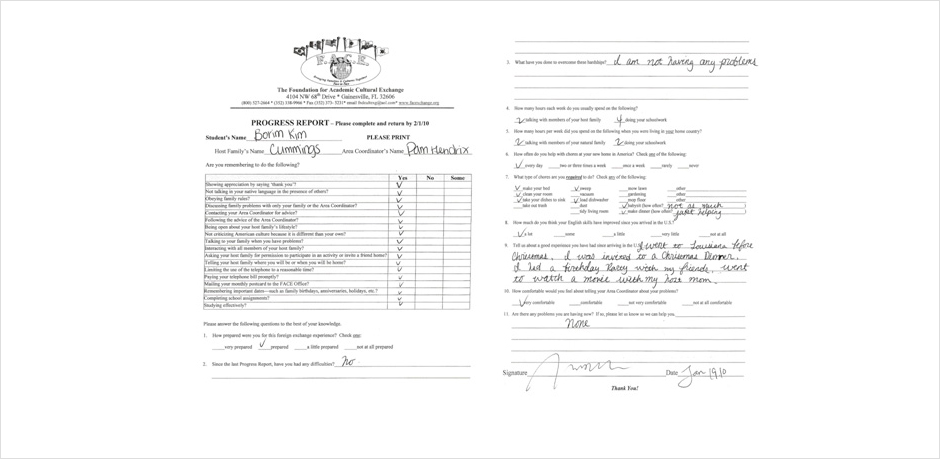 F.A.C.E.
The Foundation for Academic Cultural Exchange
4104 NW 68th Drive * Gainesville, FL 32606
(800) 527-2664 * (352) 338-9966 * Fax (352) 373- * www.facexchange.org
PROGRESS REPORT – Please complete and return by 2/1/10
Student's Name Borim Kim PLEASE PRINT
Host Family's Name Cummings Area Coordinator's Name Pam Hendrix
Are you remembering to do the following?
Yes No Some
Showing appreciation by saying 'thank you'? ✓
Not talking in your native language in the presence of others? ✓
Obeying family rules? ✓
Discussing family problems with only your family or the Area Coordinator? ✓
Contacting your Area Coordinator for advice? ✓
Following the advice of the Area Coordinator? ✓
Being open about your host family's lifestyle? ✓
Not criticizing American culture because it is different than your own? ✓
Talking to your family when you have problems? ✓
Interacting with all members of your host family? ✓
Asking your host family for permission to participate in an activity or invite a friend home? ✓
Telling your host family where you will be or when you will be home? ✓
Limiting the use of the telephone to a reasonable time? ✓
Paying your telephone bill promptly? ✓
Mailing your monthly postcard to the FACE Office? ✓
Remembering important dates—such as family birthdays, anniversaries, holidays, etc.? ✓
Completing school assignments? ✓
Studying effectively? ✓
Please answer the following questions to the best of your knowledge.
1. How prepared were you for this foreign exchange experience? Check one:
very prepared ✓ prepared a little prepared not at all prepared
2. Since the last Progress Report, have you had any difficulties? No
3. What have you done to overcome these hardships? I am not having any problems
4. How many hours each week do you usually spend on the following?
2 talking with members of your host family 4 doing your schoolwork
5. How many hours per week did you spend on the following when you were living in your home country?
2 talking with members of your natural family 2 doing your schoolwork
6. How often do you help with chores at your new home in America? Check any of the following:
✓ every day two or three times a week once a week rarely never
7. What type of chores are you required to do? Check any of the following:
✓ make your bed ✓ sweep mow lawn other
✓ clean your room vacuum gardening other
✓ take your dishes to sink ✓ load dishwasher mop floor other
take out trash dust ✓ babysit (how often) not as much
tidy living room ✓ make dinner (how often) just helping
8. How much do you think your English skills have improved since you arrived in the U.S.?
✓ a lot some a little very little not at all
9. Tell us about a good experience you have had since arriving in the U.S. I went to Louisiana before
Christmas. I was invited to a Christmas Dinner.
I had a birthday Party with my friends, went
to watch a movie with my host mom.
10. How comfortable would you feel about telling your Area Coordinator about your problems?
✓ very comfortable comfortable not very comfortable not at all comfortable
11. Are there any problems you are having now? If so, please let us know so we can help you.
None
Signature Date Jan 19 10
Thank You!